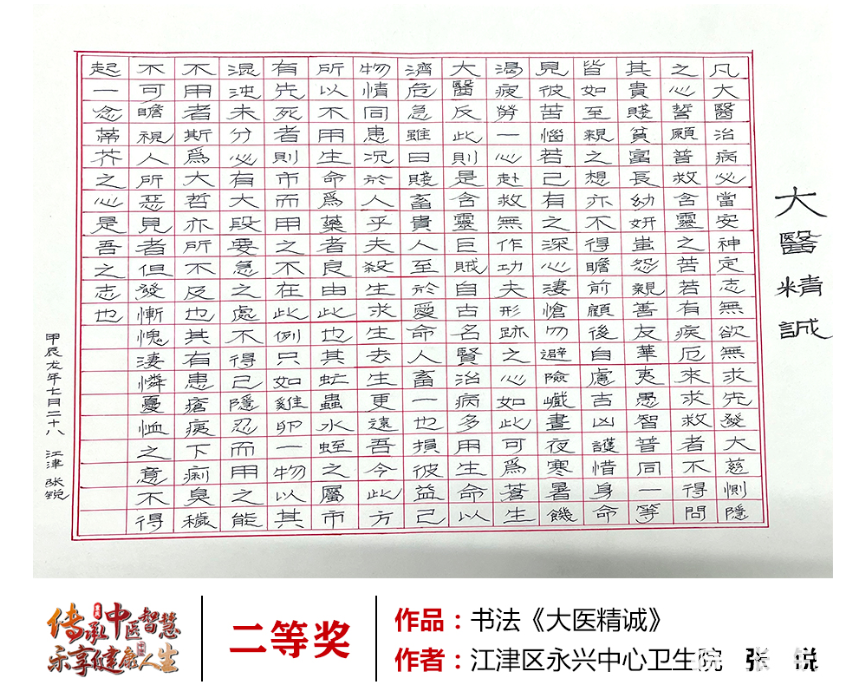 大醫精誠
凡大醫治病必當安神定志無欲無求先發大慈惻隱
之心誓願普救含靈之苦若有疾厄來求救者不得問
其貴賤貧富長幼妍蚩怨親善友華夷愚智普同一等
皆如至親之想亦不得瞻前顧後自慮吉凶護惜身命
見彼苦惱若己有之深心淒愴勿避險巇晝夜寒暑饑
渴疲勞一心赴救無作功夫形跡之心如此可爲蒼生
大醫反此則是含靈巨賊自古名賢治病多用生命以
濟危急雖曰賤畜貴人至於愛命人畜一也損彼益己
物情同患況於人乎夫殺生求生去生更遠吾今此方
所以不用生命爲藥者良由此也其虻蟲水蛭之屬市
有先死者則市而用之不在此例只如雞卵一物以其
混沌未分必有大段要急之處不得已隱忍而用之能
不用者斯爲大哲亦所不及也其有患瘡痍下痢臭穢
不可瞻視人所惡見者但發慚愧淒憐憂恤之意不得
起一念蒂芥之心是吾之志也
甲辰龙年七月二十八 江津 张锐
传承中医智慧
乐享健康人生
二等奖
作品：书法《大医精诚》
作者：江津区永兴中心卫生院 张 锐